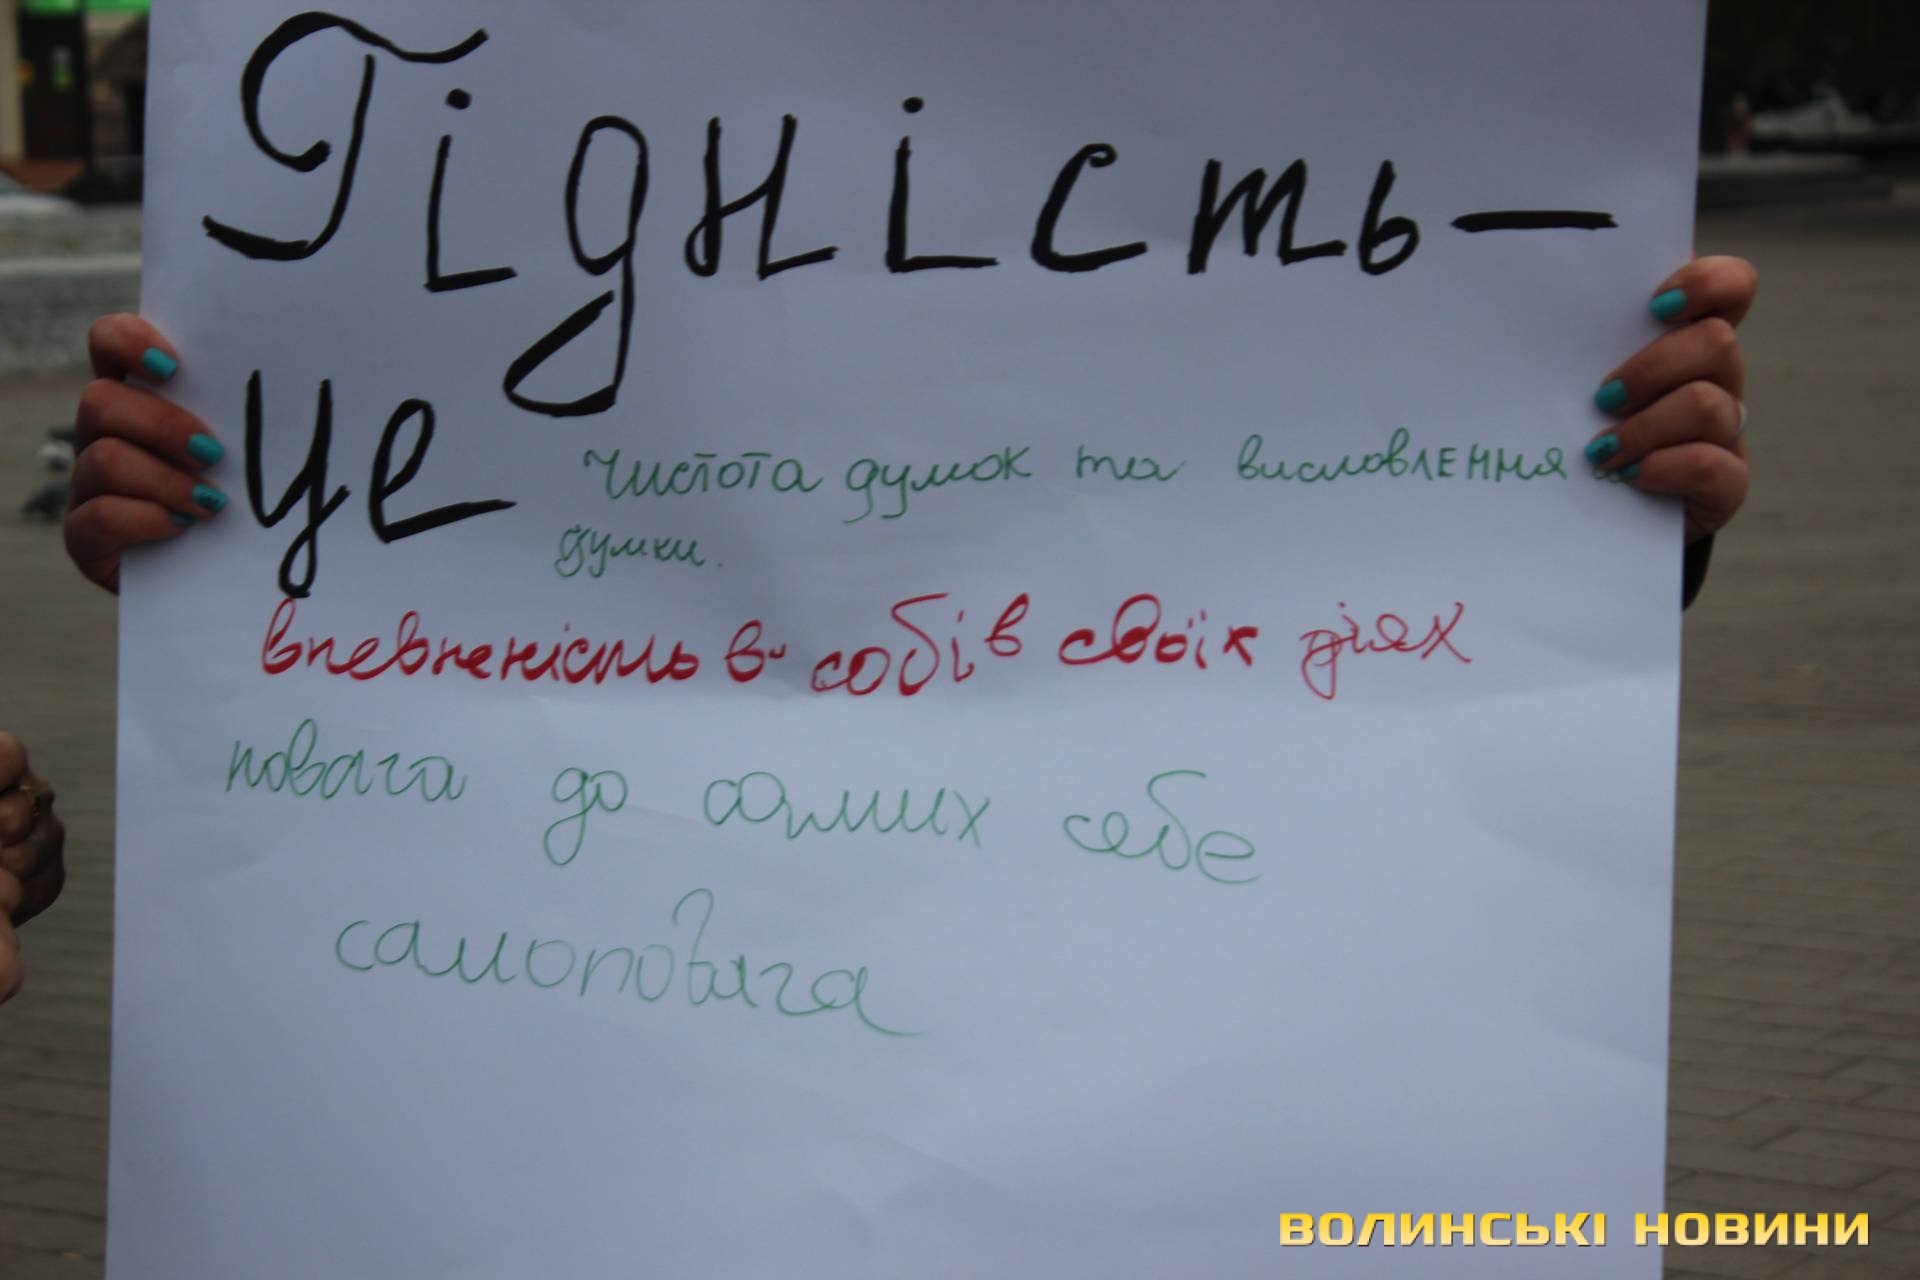 Гідність —
це чистота думок та висловлення
думки.
впевненість в собі в своїх діях
повага до самих себе
самоповага
ВОЛИНСЬКІ НОВИНИ